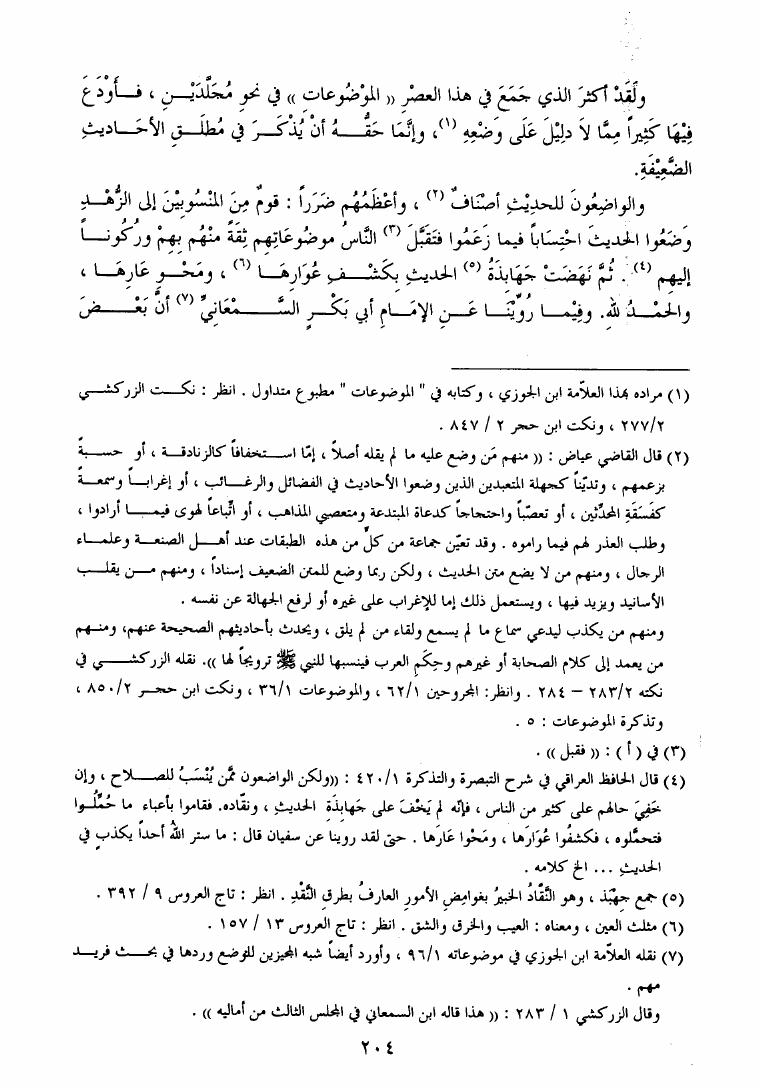 ولَقَدْ أكثرَ الذي جَمَعَ في هذا العصْرِ (( الموْضُوعاتِ )) في نحوِ مُجَلَّدَيْـنِ ، فــأَوْدَعَ
فِيْهَا كَثِيْراً مِمَّا لاَ دلِيْلَ عَلَى وَضْعِهِ (١)، وإنَّمَا حَقُّــهُ أنْ يُذْكَــرَ في مُطلَقِ الأحَــاديثِ
الضَّعِيْفَةِ.
والواضِعُونَ للحديْثِ أصْنَافٌ (٢) ، وأعْظَمُهُم ضَرَراً : قومٌ مِنَ المنْسُوبيْنَ إلى الزُّهْــدِ
وَضَعُوا الحديثَ احْتِسَاباً فيما زَعَمُوا فتَقَبَّلَ (٣) النَّاسُ موضُوعَاتِهم ثِقَةً منْهُم بِهِمْ ورُكُونــاً
إليهِم (٤) . ثُمَّ نَهَضَتْ جَهَابِذَةُ (٥) الحديثِ بكَشْــفِ عُوَارِهــا (٦) ، ومَحْــوِ عَارِهــا ،
والحَمْــدُ للهِ. وفِيْمــا رُوِّيْنَــا عَــنِ الإمَــامِ أبي بَكْــرٍ السَّــمْعَانِيِّ (٧) أنَّ بَعْــضَ
(١) مراده بهذا العلاّمة ابن الجوزي ، وكتابه في " الموضوعات " مطبوع متداول . انظر : نكــت الزركشــي
٢٧٧/٢ ، ونكت ابن حجر ٢ / ٨٤٧ .
(٢) قال القاضي عياض : (( منهم مَن وضع عليه ما لم يقله أصلاً ، إمّا اســتخفافاً كالزنادقــة ، أو حســبةً
بزعمهم ، وتديّناً كجهلة المتعبدين الذين وضعوا الأحاديث في الفضائل والرغــائب ، أو إغرابــاً وسمعــةً
كفسَقَةِ المحدِّثين ، أو تعصّباً واحتجاجاً كدعاة المبتدعة ومتعصبي المذاهب ، أو اتِّباعاً لهوى فيمــا أرادوا ،
وطلب العذر لهم فيما راموه . وقد تعيّن جماعة من كلٍّ من هذه الطبقات عند أهــل الصنعــة وعلمــاء
الرجال ، ومنهم من لا يضع متن الحديث ، ولكن ربما وضع للمتن الضعيف إسناداً ، ومنهم مــن يقلــب
الأسانيد ويزيد فيها ، ويستعمل ذلك إما للإغراب على غيره أو لرفع الجهالة عن نفسه .
ومنهم من يكذب ليدعي سماع ما لم يسمع ولقاء من لم يلق ، ويحدث بأحاديثهم الصحيحة عنهم، ومنــهم
من يعمد إلى كلام الصحابة أو غيرهم وحِكَمِ العرب فينسبها للنبي ﷺ ترويجاً لها )). نقله الزركشــي في
نكته ٢٨٣/٢ – ٢٨٤ . وانظر: المجروحين ٦٢/١ ، والموضوعات ٣٦/١ ، ونكت ابن حجــر ٨٥٠/٢ ،
وتذكرة الموضوعات : ٥ .
(٣) في ( أ ) : (( فقبل )) .
(٤) قال الحافظ العراقي في شرح التبصرة والتذكرة ٤٢٠/١ : ((ولكن الواضعون ممَّن يُنْسَبُ للصــلاح ، وإن
خَفِيَ حالهم على كثير من الناس ، فإنّه لم يَخْفَ على جَهابِذَةِ الحديثِ ، ونقّاده. فقاموا بأعباء ما حُمِّلُــوا
فتحمَّلوه ، فكشفُوا عُوَارَها ، ومَحَوا عَارَها . حتى لقد روينا عن سفيان قال : ما ستر اللهُ أحداً يكذب في
الحديثِ ... الخ كلامه .
(٥) جمع جِهْبَذ ، وهو النَّقّادُ الخبيرُ بغوامِضِ الأمورِ العارفُ بطرقِ النَّقْدِ . انظر : تاج العروس ٩ / ٣٩٢ .
(٦) مثلث العين ، ومعناه : العيب والخرق والشق . انظر : تاج العروس ١٣ / ١٥٧ .
(٧) نقله العلاّمة ابن الجوزي في موضوعاته ٩٦/١ ، وأورد أيضاً شبه المجيزين للوضع وردها في بحــث فريــد
مهم .
وقال الزركشي ١ / ٢٨٣ : (( هذا قاله ابن السمعاني في المجلس الثالث من أماليه )) .
٢٠٤